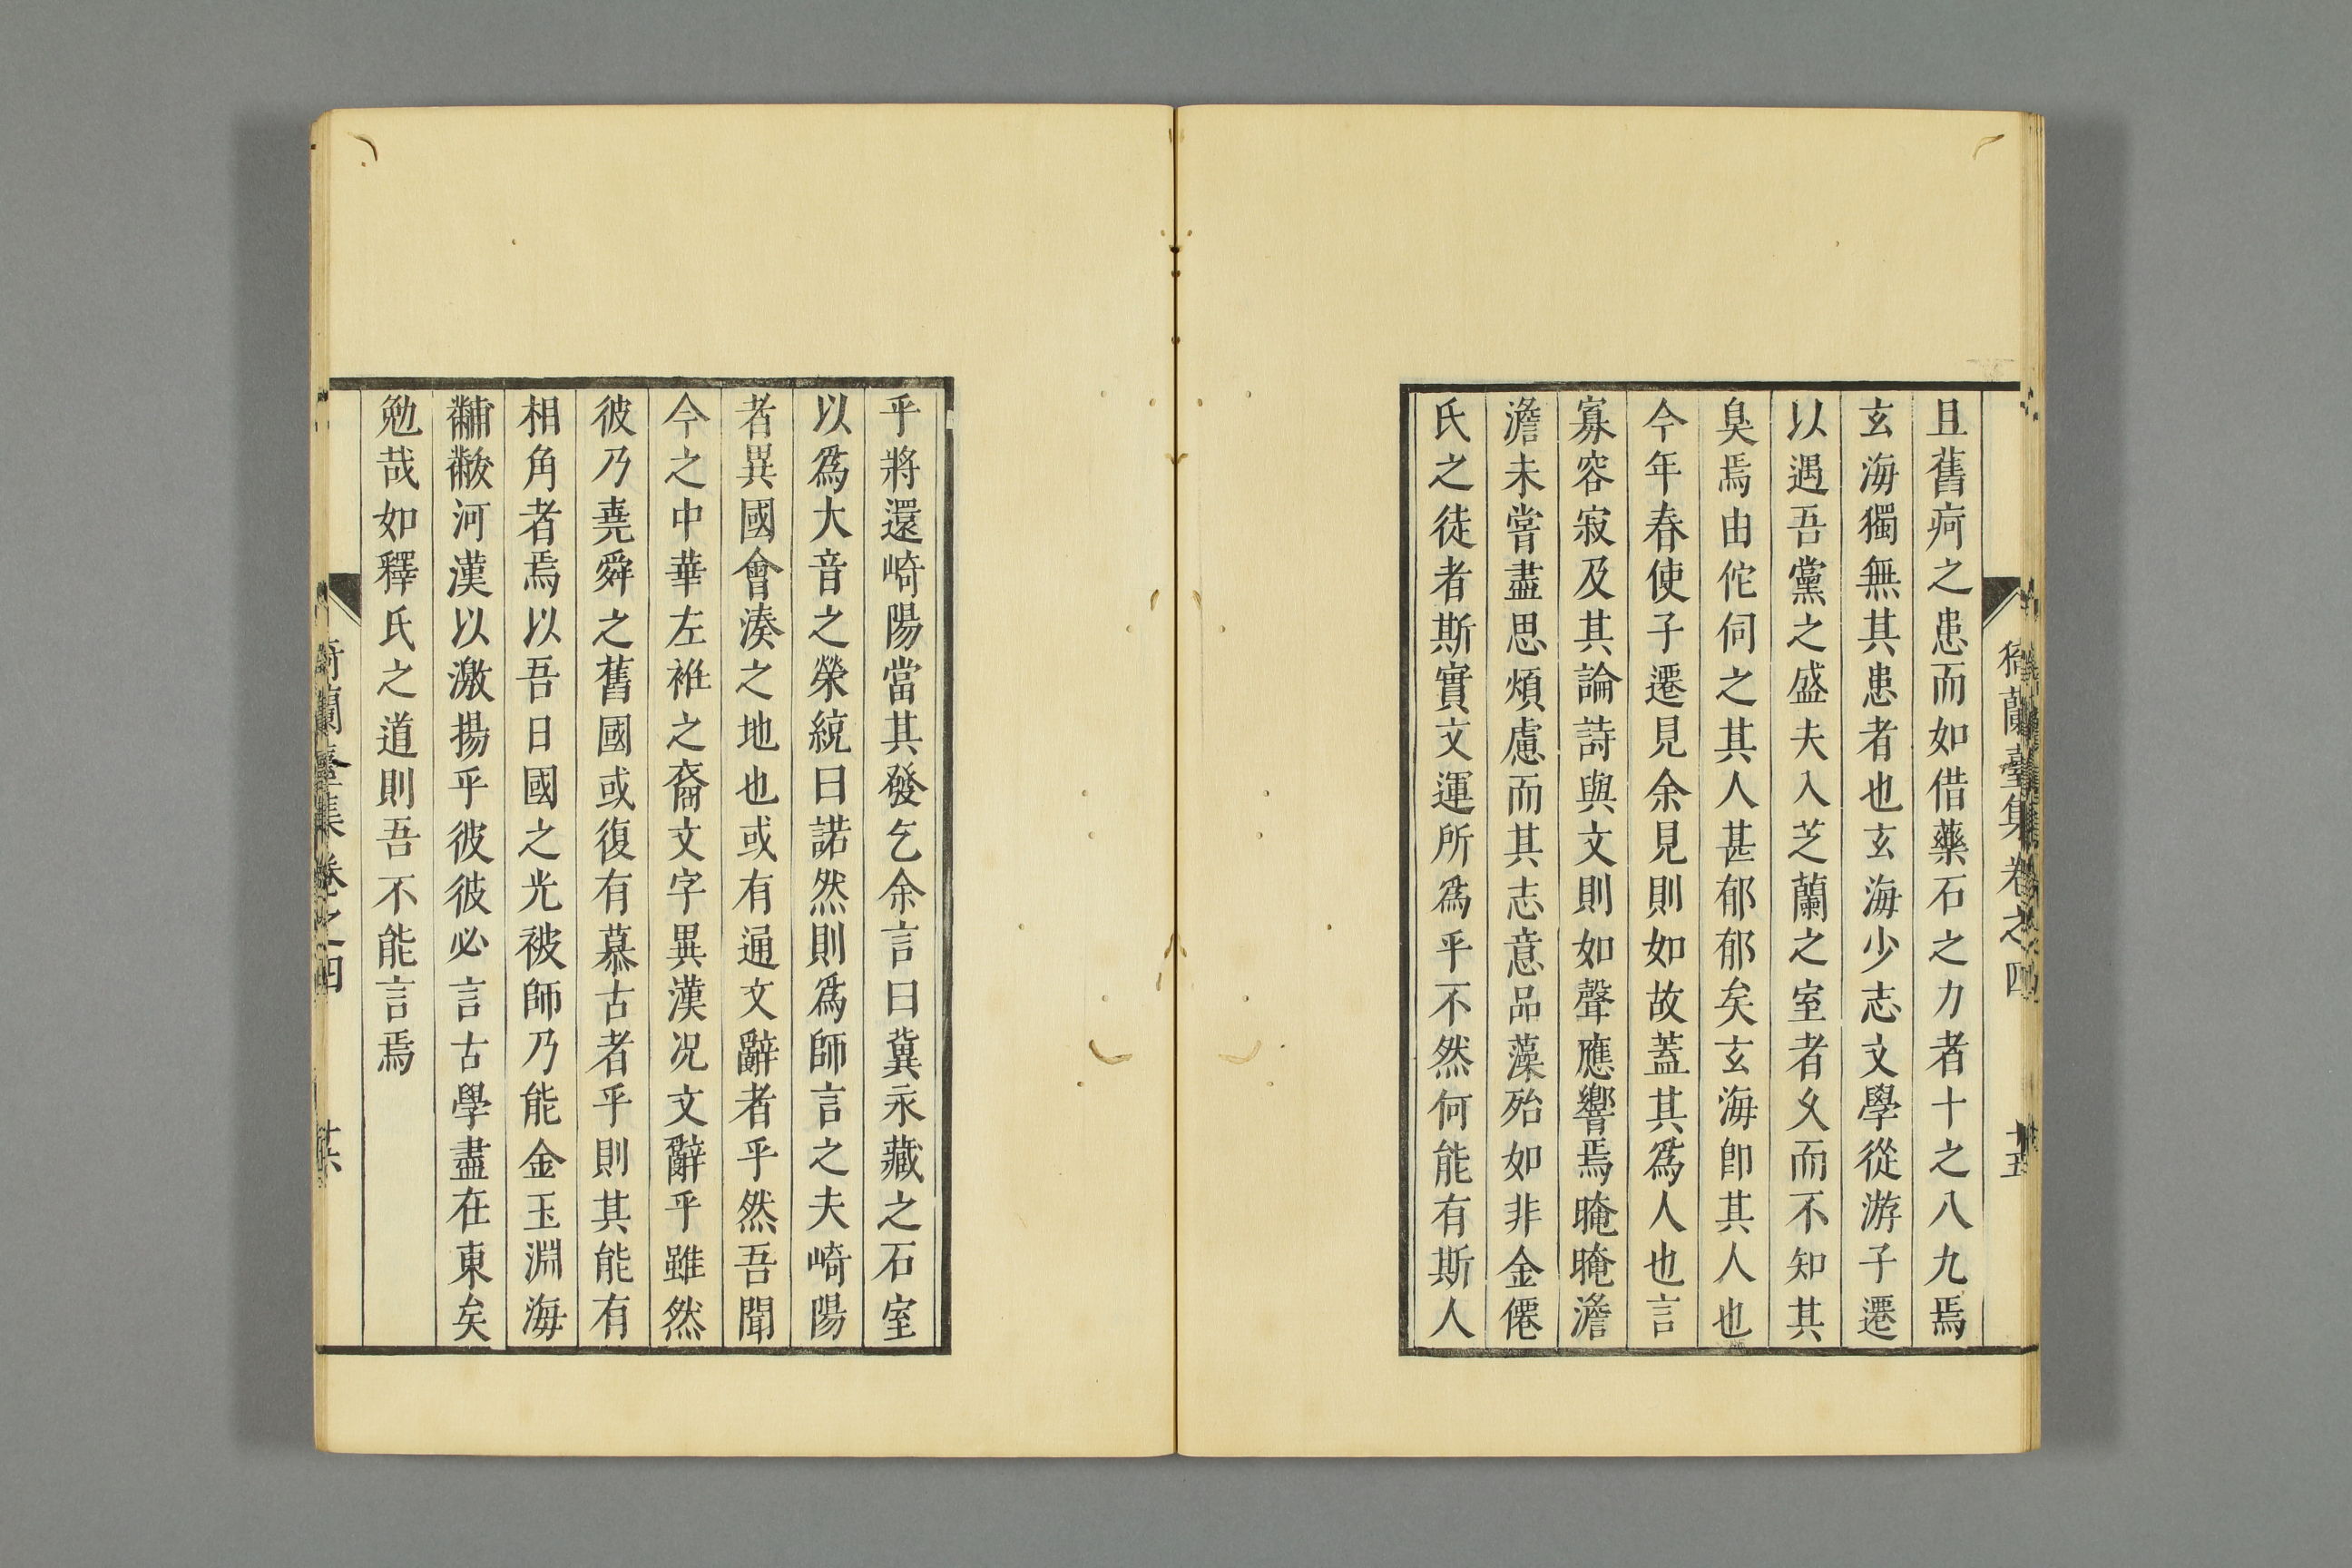 且舊疴之患而如借藥石之力者十之八九焉
玄海獨無其患者也玄海少志文學從游子遷
以遇吾黨之盛夫入芝蘭之室者久而不知其
臭焉由佗伺之其人甚郁郁矣玄海卽其人也
今年春使子遷見余見則如故蓋其爲人也言
寡容寂及其論詩與文則如聲應響焉晻晻澹
澹未嘗盡思煩慮而其志意品藻殆如非金僊
氏之徒者斯實文運所爲乎不然何能有斯人
乎將還崎陽當其發乞余言曰冀永藏之石室
以爲大音之榮統曰諾然則爲師言之夫崎陽
者異國會湊之地也或有通文辭者乎然吾聞
今之中華左衽之裔文字異漢况文辭乎雖然
彼乃堯舜之舊國或復有慕古者乎則其能有
相角者焉以吾日國之光被師乃能金玉淵海
黼黻河漢以激揚乎彼彼必言古學盡在東矣
勉哉如釋氏之道則吾不能言焉
蘭臺集卷之四
十五
蘭臺集卷之四